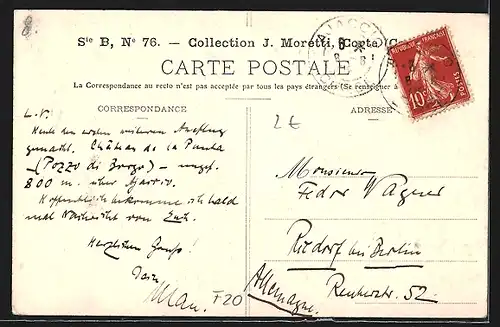 Ste B, No 76. — Collection J. Moretti, Corte (C
AJACCIO
CARTE POSTALE
La Correspondance au recto n'est pas acceptée par tous les pays étrangers (Se renseigner à
CORRESPONDANCE
ADRESSE
REPUBLIQUE FRANÇAISE
POSTES
10
2€
L. V.
Heute den ersten weiteren Ausflug
gemacht. Château de la Punta
— (Pozzo di Borgo) — ungef.
800 m. über Ajaccio.
Hoffentlich bekomme ich bald
mal Nachricht von Euch.
Herzlichen Gruss!
F20
Monsieur
Fedor Wagner
Rixdorf bei Berlin
Allemagne.
52